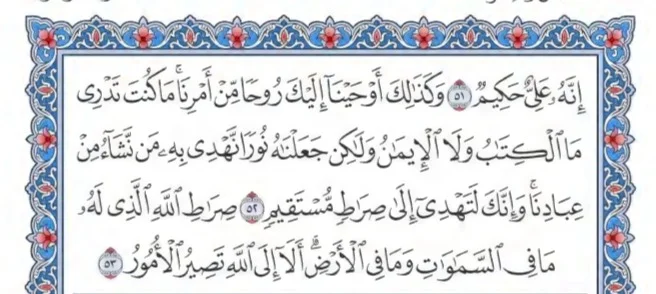 إِنَّهُۥ عَلِىٌّ حَكِيمٌ ٥١ وَكَذَٰلِكَ أَوْحَيْنَآ إِلَيْكَ رُوحًا مِّنْ أَمْرِنَا ۚ مَا كُنتَ تَدْرِى
مَا ٱلْكِتَٰبُ وَلَا ٱلْإِيمَٰنُ وَلَٰكِن جَعَلْنَٰهُ نُورًا نَّهْدِى بِهِۦ مَن نَّشَآءُ مِنْ
عِبَادِنَا ۚ وَإِنَّكَ لَتَهْدِىٓ إِلَىٰ صِرَٰطٍ مُّسْتَقِيمٍ ٥٢ صِرَٰطِ ٱللَّهِ ٱلَّذِى لَهُۥ
مَا فِى ٱلسَّمَٰوَٰتِ وَمَا فِى ٱلْأَرْضِ ۗ أَلَآ إِلَى ٱللَّهِ تَصِيرُ ٱلْأُمُورُ ٥٣